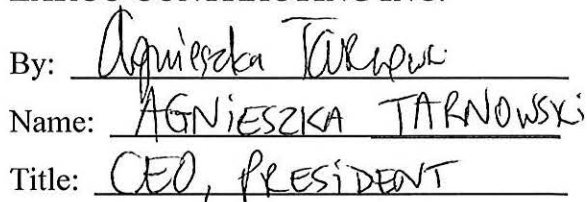 By: Agnieszka Tarnowski
Name: AGNiESZKA TARNOWSKi
Title: CEO, PRESiDENT